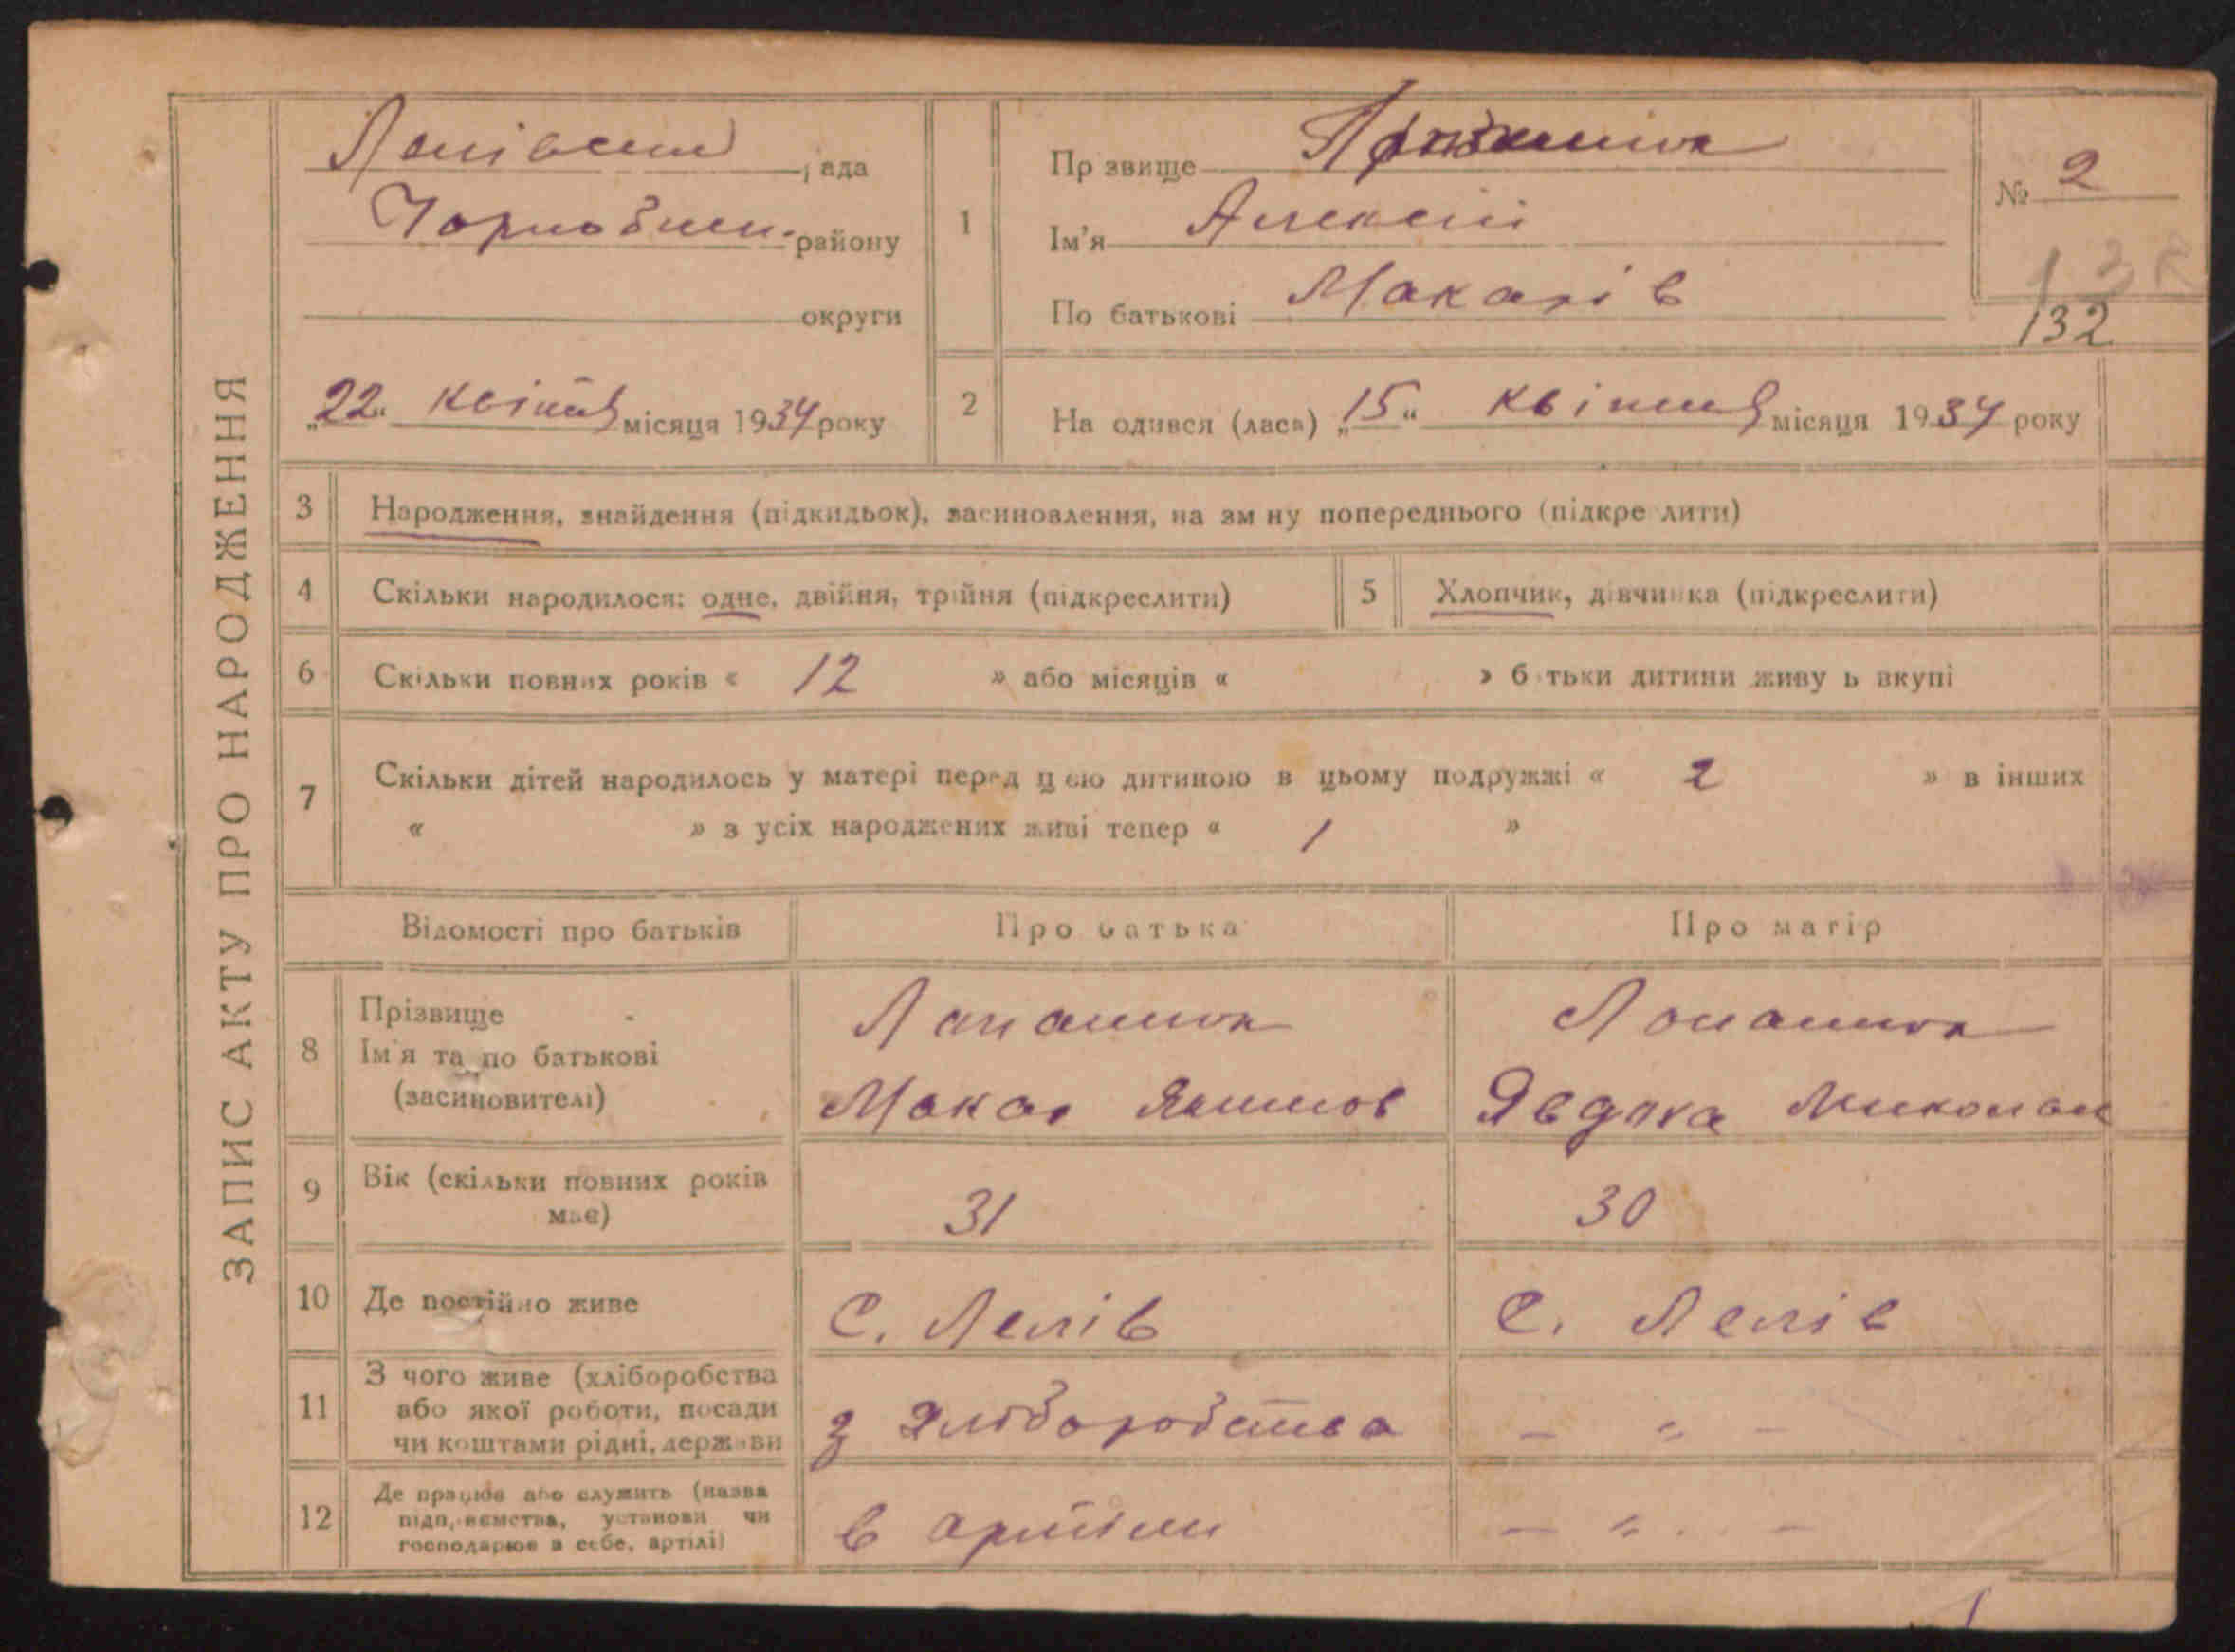 ЗАПИС АКТУ ПРО НАРОДЖЕННЯ
рада
району
округи
„22“ квітня місяця 1934 року
1
Прізвище
Ім'я Алексій
По батькові Макарів
№ 2
132
132
2
На одився (лася) „15“ квітня місяця 1934 року
3 Народження, знайдення (підкидьок), засиновлення, на зм ну попереднього (підкре лити)
4 Скільки народилося: одне, двійня, трійня (підкреслити)
5 Хлопчик, дівчинка (підкреслити)
6 Скільки повних років « 12 » або місяців « » б тьки дитини живу ь вкупі
7 Скільки дітей народилось у матері перед цею дитиною в цьому подружжі « 2 » в інших
« » з усіх народжених живі тепер « 1 »
Відомості про батьків
Про батька
Про матір
8 Прізвище
Ім'я та по батькові
(засиновителі)
Макар
Явдоха
9 Вік (скільки повних років
має)
31
30
10 Де постійно живе
С. Лелів
С. Лелів
11 З чого живе (хліборобства
або якої роботи, посади
чи коштами рідні, держави
з хліборобства
– „ –
12 Де працює або служить (назва
підприємства, установи чи
господарює в себе, артілі)
в артілі
– „ –